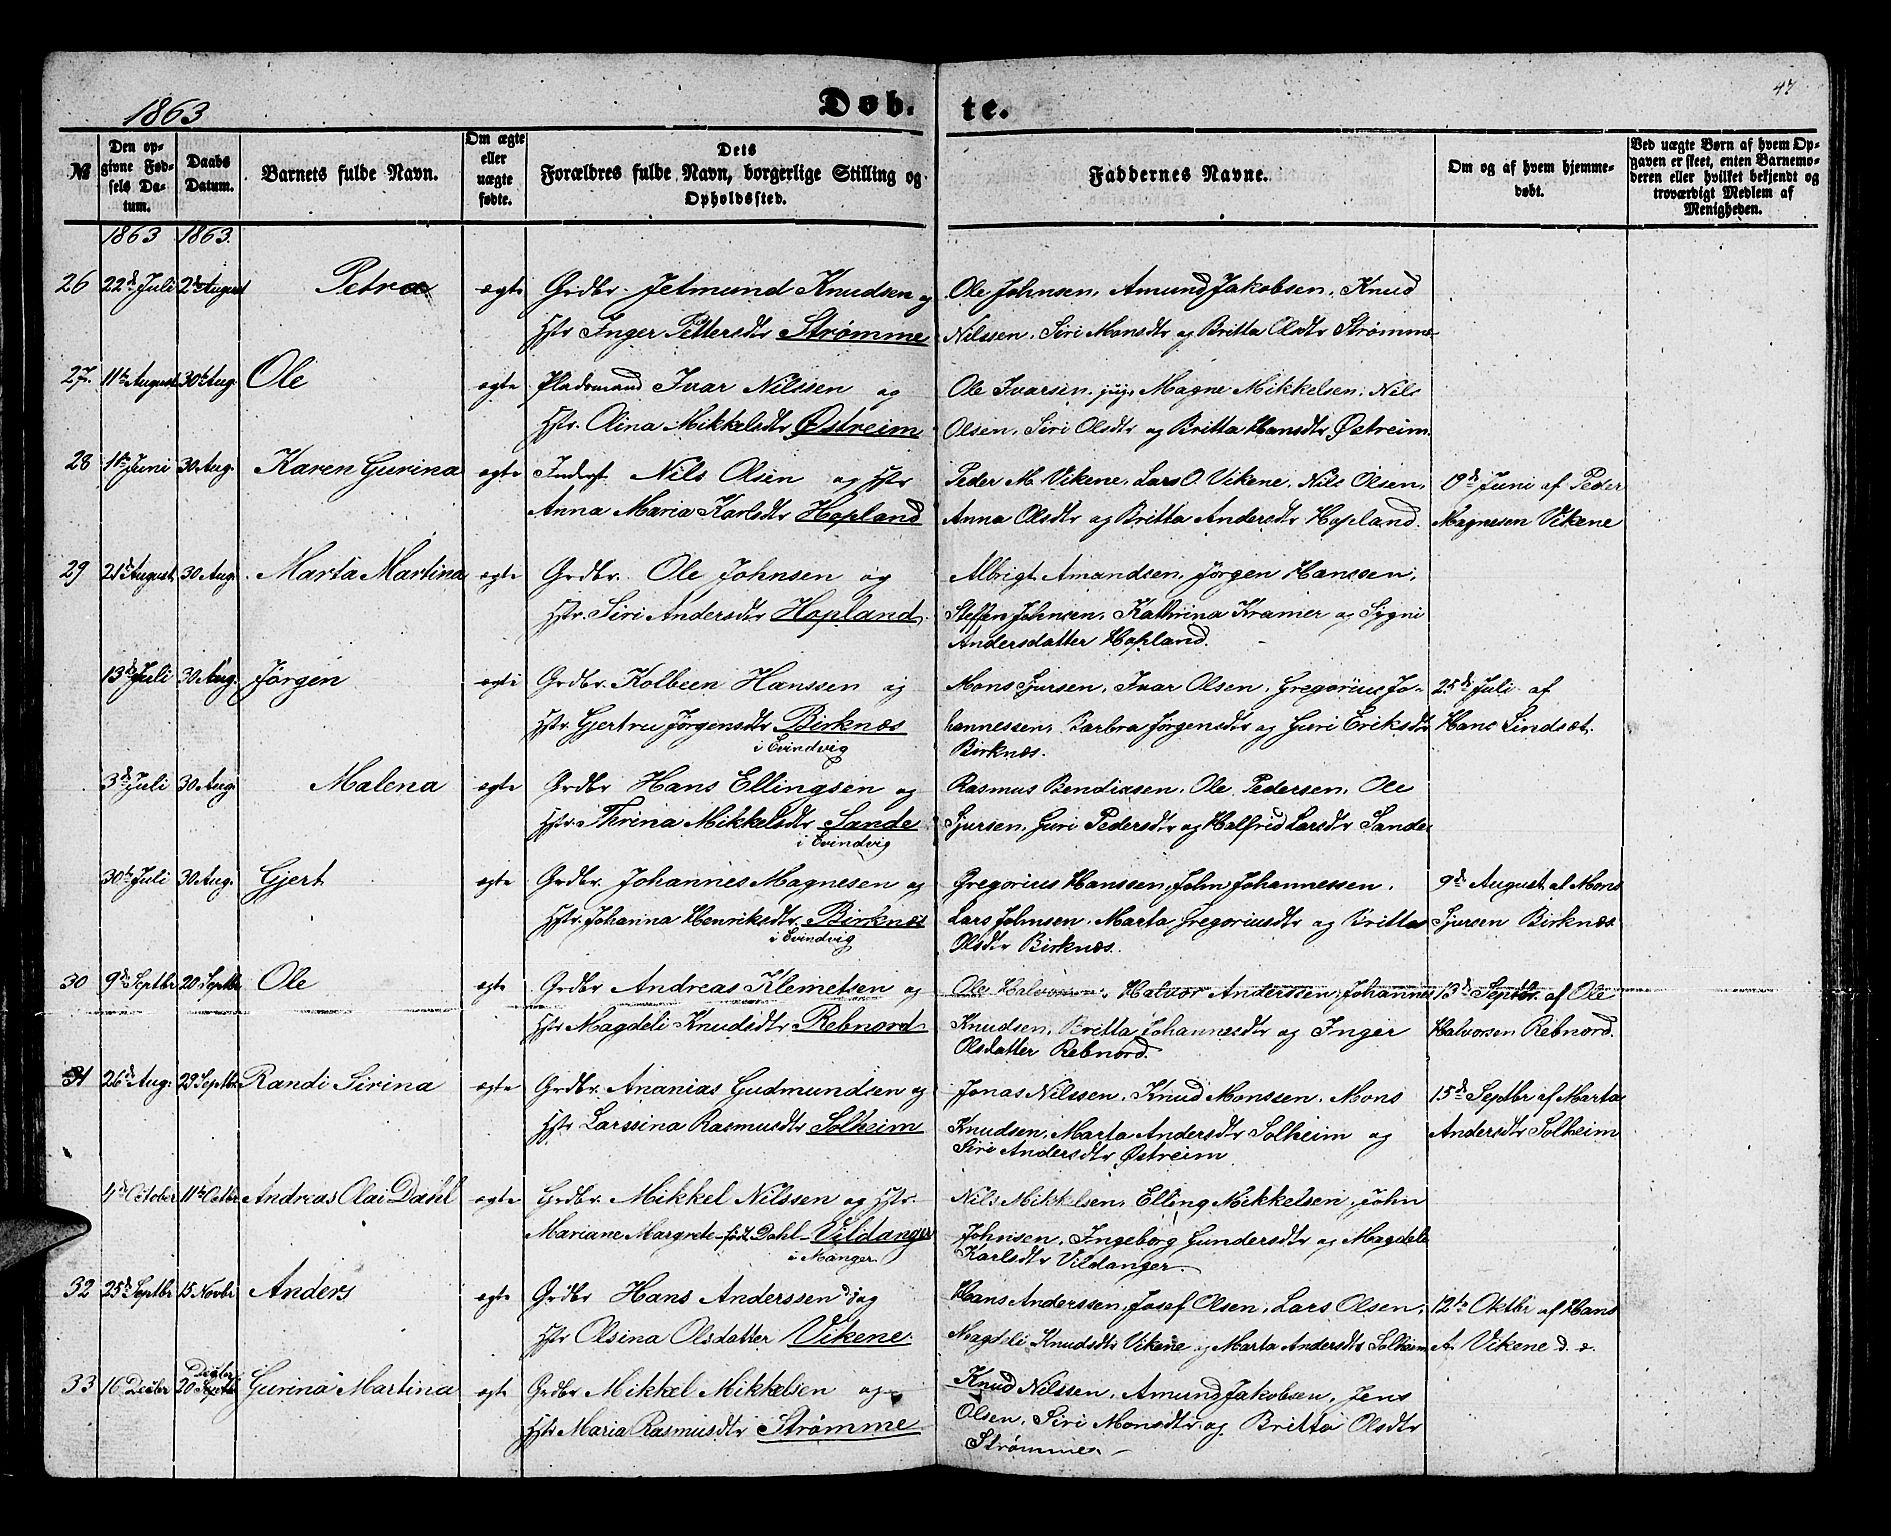 1863
Døb- te.
47
№
Den op-
givne Fød-
sels Da-
tum.
Daabs
Datum.
Barnets fulde Navn.
Om ægte
eller
uægte
fødte.
Dets
Forældres fulde Navn, borgerlige Stilling og
Opholdssted.
Faddernes Navne.
Om og af hvem hjemme-
døbt.
Ved uægte Børn af hvem Op-
gaven er skeet, enten Barnemo-
deren eller hvilket bekjendt og
troværdigt Medlem af
Menigheden.
1863 1863.
26 22de Juli 2de August Petra ægte Grdbr. Jetmund Knudsen og Ole Johnsen, Amund Jakobsen, Knud
Hstr Inger Pettersdtr Strømme Nilssen, Siri Monsdtr og Britta Olsdtr Strømme
27. 11te August 30te Aug. Ole ægte Pladsmand Ivar Nilssen og Ole Ivarsen, Magne Mikkelsen, Nils
Hstr. Olina Mikkelsdtr Østreim Olsen, Siri Olsdtr og Britta Hansdtr Østreim.
28 1te Juni 30 Aug. Karen Gurina ægte Inderst Nils Olsen og Hstr Peder M. Vikene, Lars O. Vikene, Nils Olsen, 19de Juni af Peder
Anna Maria Karlsdtr Hopland Anna Olsdtr og Britta Andersdtr Hopland. Magnesen Vikene
29 21de August 30 Aug. Marta Martina ægte Grdbr. Ole Johnsen og Albrigt Amandsen, Jørgen Hanssen,
Hstr. Siri Andersdtr Hopland. Steffen Johnsen, Kathrina Kramer og Sygni
Andersdatter Hopland.
13de Juli 30 Aug. Jørgen ægte Grdbr. Kolbeen Hanssen og Mons Sjursen, Ivar Olsen, Gregorius Jo- 25de Juli af
Hstr. Gjertru Jørgensdtr Birknæs hannessen, Barbra Jørgensdtr og Guri Eriksdtr Hans Lindsæt.
i Evindvig Birknæs.
3de Juli 30 Aug. Malena ægte Grdbr Hans Ellingsen og Rasmus Bendixsen, Ole Pedersen, Ole
Hstr. Therina Mikkelsdtr Sande Sjursen, Guri Pedersdtr og Halfrid Larsdtr Sande
i Evindvig
30te Juli 30 Aug. Gjert ægte Grdbr. Johannes Magnesen og Gregorius Hanssen, John Johannessen, 9de August af Mons
Hstr. Johanna Henriksdtr Birknæs Lars Johnsen, Marta Gregoriusdtr og Britta Sjursen Birknæs
i Evindvig Olsdtr Birknæs.
30 9de Septbr 20 Septbr Ole ægte Grdbr Andreas Klemetsen og Ole Halvorsen, Halvor Anderssen, Johannes 13de Septbr. af Ole
Hstr Magdeli Knudsdtr Rebnord Knudsen, Britta Johannesdtr og Inger Halvorsen Rebnord.
Olsdatter Rebnord.
31 26de Aug. 29 Septbr Randi Sirina ægte Grdbr. Ananias Gudmundsen og Jonas Nilssen, Knud Monssen, Mons 15de Septbr af Marta
Hstr Larssina Rasmusdtr Solheim Knudsen, Marta Andersdtr Solheim og Andersdtr Solheim
Siri Andersdtr Østreim
4de October 11te Octbr Andreas Olai Dahl ægte Grdbr. Mikkel Nilssen og Hstr. Nils Mikkelsen, Elling Mikkelsen, John
Mariane Margrete født Dahl Vildanger Johnsen, Ingeborg Gundersdtr og Magdele
i Manger. Karlsdtr Vildanger.
32 25de Septbr 15 Novbr Anders ægte Grdbr Hans Anderssen og Hans Anderssen, Josef Olsen, Lars Olsen, 12te Oktbr af Hans
Hstr Olsina Olsdatter Vikene Magdeli Knudsdtr Vikene og Marta Andersdtr Solheim A. Vikene d. æ.
Decbr
33 16 Decbr 20 Septbr Gurina Martina ægte Grdbr Mikkel Mikkelsen og Knud Nilssen, Amund Jakobsen, Jens
Hstr Maria Rasmusdtr Strømme Olsen, Siri Monsdtr og Britta Olsdtr
Strømme.